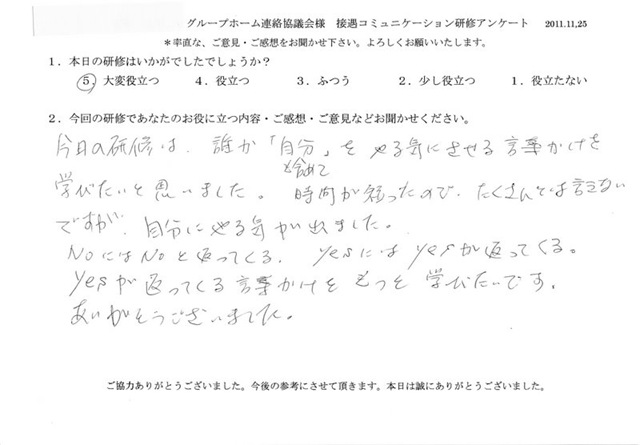 グループホーム連絡協議会様 接遇コミュニケーション研修アンケート 2011.11,25
*率直な、ご意見・ご感想をお聞かせ下さい。よろしくお願いいたします。
1.本日の研修はいかがでしたでしょうか?
5.大変役立つ 4.役立つ 3.ふつう 2.少し役立つ 1.役立たない
2.今回の研修であなたのお役に立つ内容・ご感想・ご意見などお聞かせください。
今日の研修は、誰か「自分」をやる気にさせる言葉かけを
も含めて
学びたいと思いました。時間が短ったので、たくさんとは言えない
ですが、自分にやる気が出ました。
NoにはNoと返ってくる、yesにはyesが返ってくる。
yesが返ってくる言葉かけをもっと学びたいです。
ありがとうございました。
ご協力ありがとうございました。今後の参考にさせて頂きます。本日は誠にありがとうございました。